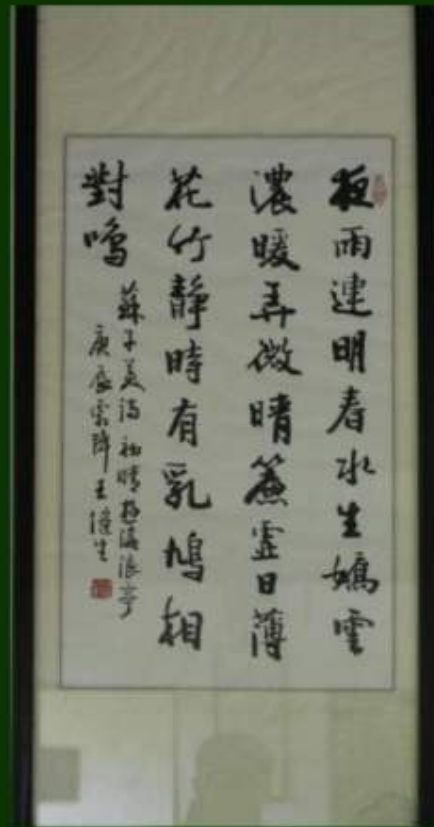 夜雨連明春水生嬌雲
濃暖弄微晴簾虛日薄
花竹靜時有乳鳩相
對鳴
蘇子美詩初晴遊滄浪亭
庚辰雲降王